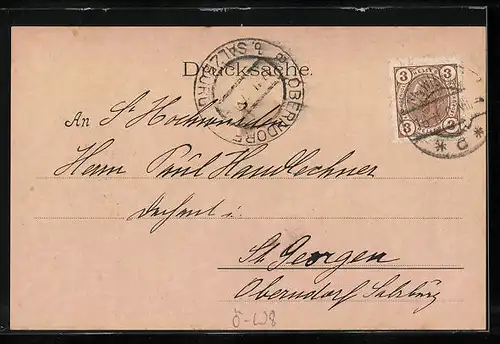 Drucksache.
OBERNDORF b. SALZBURG
3 3
3 3
An St. Hochwürden
Herrn Paul Handlechner
Dechant i.
St. Georgen
Oberndorf Salzburg
Ö-W8